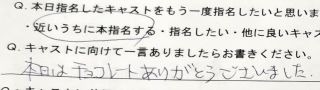 Q. 本日指名したキャストをもう一度指名したいと思いま
・近いうちに本指名する・指名したい・他に良いキャス
Q. キャストに向けて一言ありましたらお書きください。
本日はチョコレートありがとうございました.